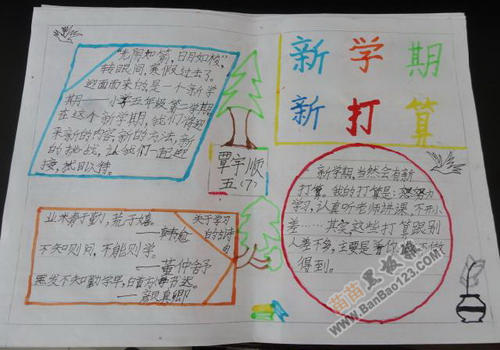 "光阴如箭，日月如梭"，
转眼间，寒假过去了。
迎面而来的是一个新学
期——小学五年级第二学期
在这个新学期，我们将迎
来新的内容新的方法，新
的挑战，让我们一起迎
接，拭目以待。
新学期
新打算
覃宇顺
五(7)
业术勤于勤，荒于嬉
——韩愈
不知则问，不能则学。
——董仲舒
黑发不知勤学早，白首方悔读书迟。
——颜真卿
关于学习
的古诗
新学期，当然会有新
打算，我的打算是：努力
学习，认真听老师讲课，不开小
差……其实这些打算跟别
人差不多，主要是看你做不做
得到。
苗苗黑板报
www.BanBao123.com